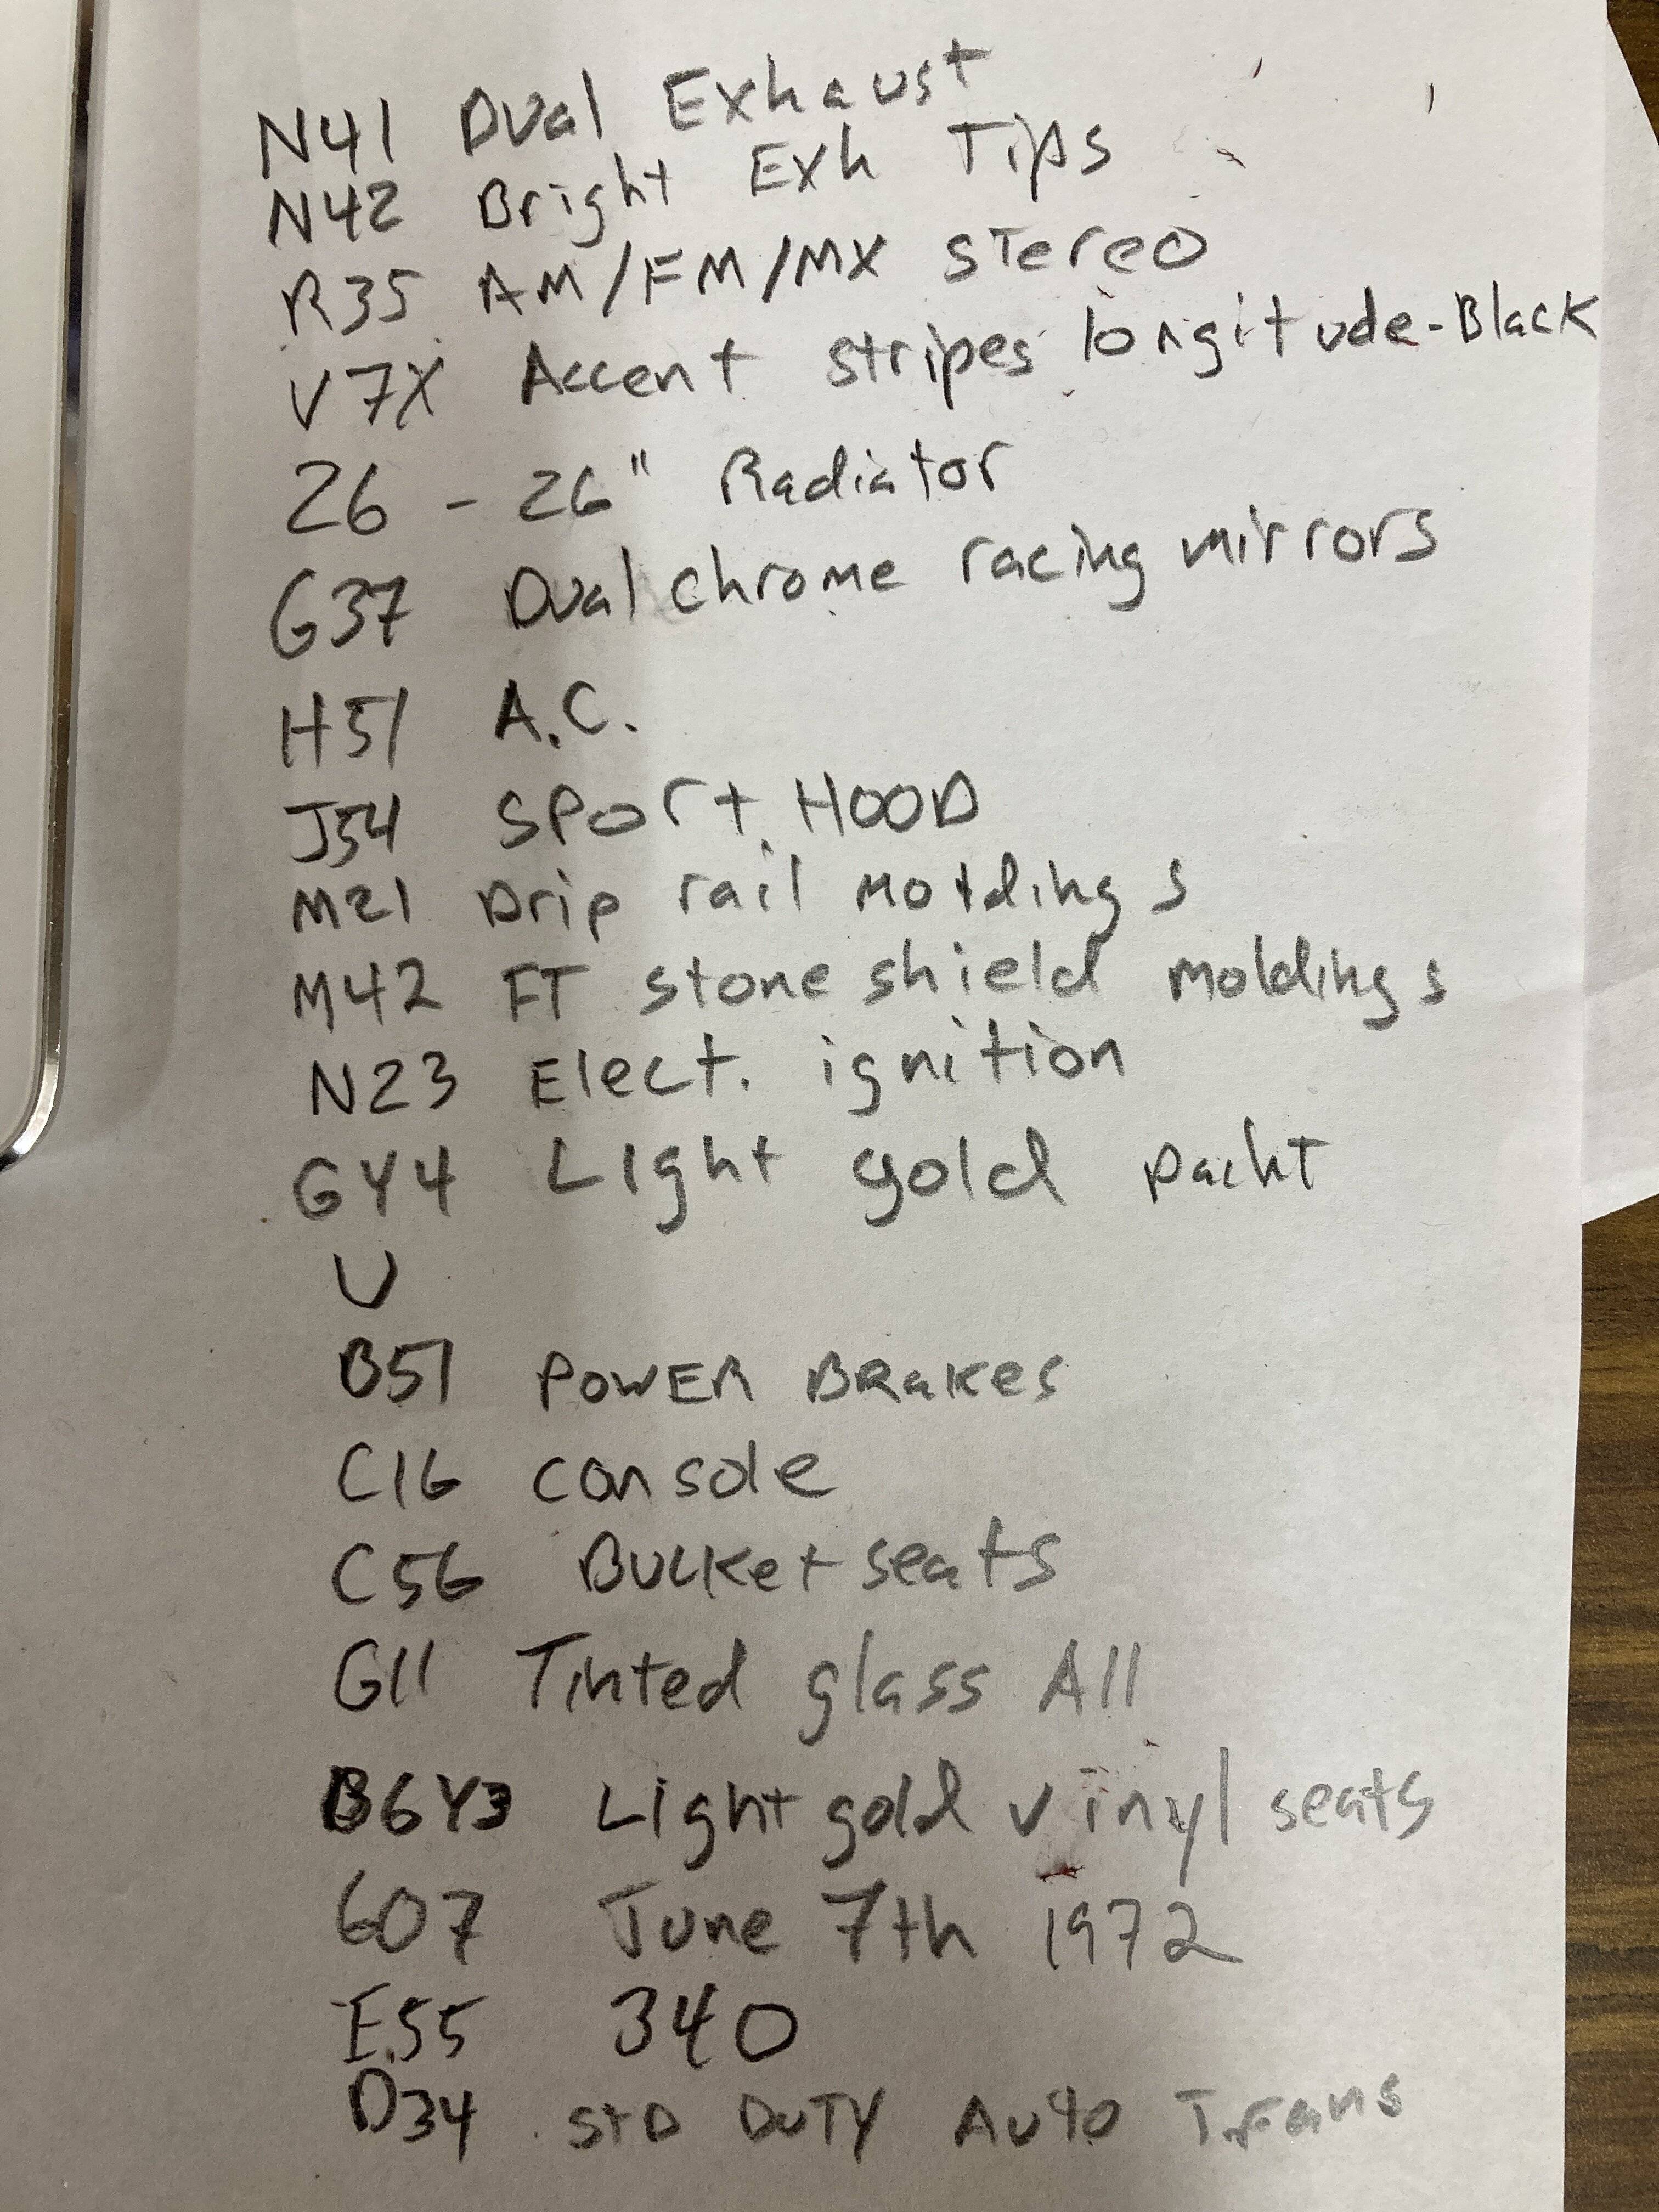 N41 Dual Exhaust
N42 Bright Exh Tips
R35 AM/FM/MX stereo
V7X Accent stripes longitude-Black
26 - 26" Radiator
G37 Dual chrome racing mirrors
H51 A.C.
J54 Sport HOOD
M21 Drip rail moldings
M42 FT stone shield moldings
N23 Elect. ignition
GY4 Light gold paint
U
B51 POWER BRakes
C16 console
C56 Bucket seats
G11 Tinted glass All
B6Y3 Light gold vinyl seats
607 June 7th 1972
E55 340
D34 STD DUTY Auto Trans